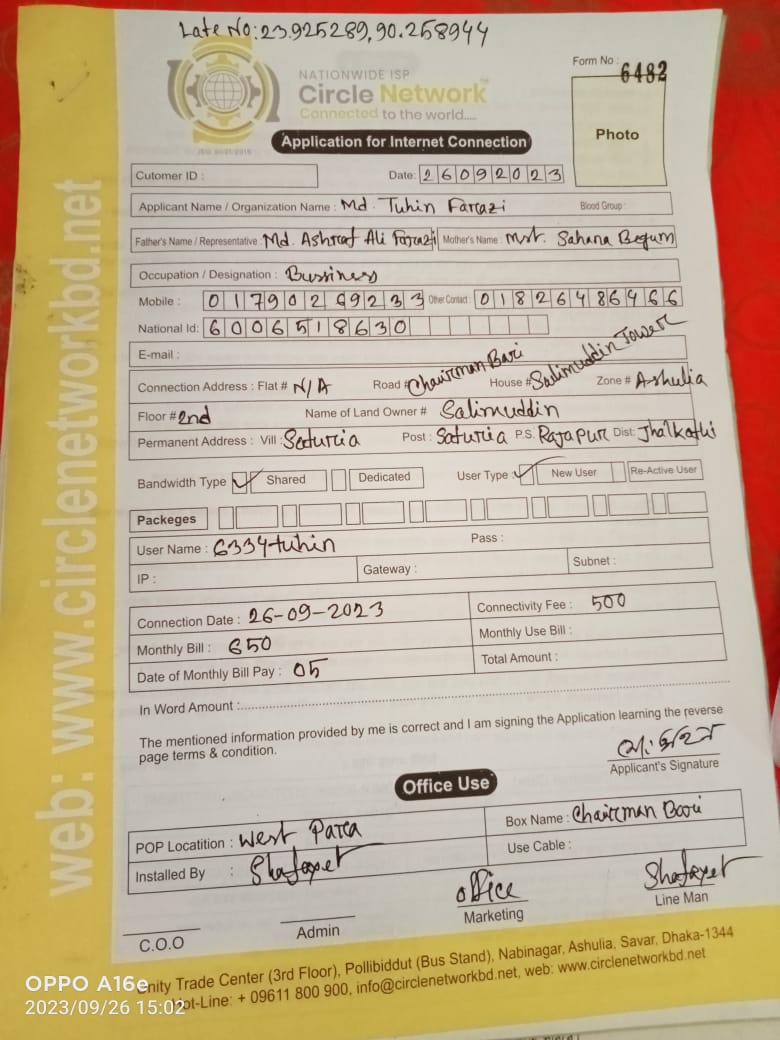 Late No: 23.925289, 90.258944
NATIONWIDE ISP
Circle Network
Connected to the world....
Form No : 6482
Photo
Application for Internet Connection
Cutomer ID :
Date: 26092023
Applicant Name / Organization Name : Md. Tuhin Farazi Blood Group :
Father's Name / Representative : Md. Ashraf Ali Farazi Mother's Name : Mst. Sahana Begum
Occupation / Designation : Bussiness
Mobile : 01790269233 Other Contact : 01826486466
National Id: 6006518630
E-mail :
Connection Address : Flat # N/A Road # Chairman Bari House # Salimuddin Tower Zone # Ashulia
Floor # 2nd Name of Land Owner # Salimuddin
Permanent Address : Vill : Saturia Post : Saturia P.S. Rajapur Dist: Jhalkathi
Bandwidth Type ✓ Shared Dedicated User Type : ✓ New User Re-Active User
Packeges
User Name : 6334tuhin Pass :
IP : Gateway : Subnet :
Connection Date : 26-09-2023 Connectivity Fee : 500
Monthly Bill : 650 Monthly Use Bill :
Date of Monthly Bill Pay : 05 Total Amount :
In Word Amount :
The mentioned information provided by me is correct and I am signing the Application learning the reverse
page terms & condition.
Applicant's Signature
Office Use
POP Locatition : West Para Box Name : Chairman Bari
Installed By : Shafayet Use Cable :
C.O.O
Admin
office
Marketing
Shafayet
Line Man
nity Trade Center (3rd Floor), Pollibiddut (Bus Stand), Nabinagar, Ashulia, Savar, Dhaka-1344
Hot-Line: + 09611 800 900, info@circlenetworkbd.net, web: www.circlenetworkbd.net
web: www.circlenetworkbd.net
OPPO A16e
2023/09/26 15:02